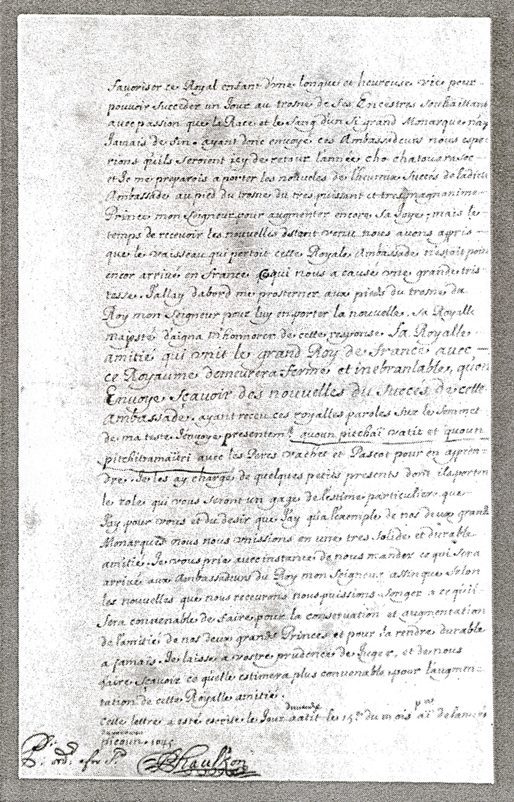 favoriser ce Royal enfant d'une longue et heureuse vie pour
pouvoir succeder un Jour au trosne de Ses Encestres Souhaittant
avec passion que la Race et le Sang d'un Si grand Monarque n'ay
Jamais de fin. ayant donc envoyé ces Ambassadeurs nous espe-
rions qu'ils Seroient icy de retour l'année cho chatouva soc
et Je me preparois a porter les nouvelles de l'heureux Succés de ladite
Ambassade au pied du trosne du tres puissant et tres magnanime
Prince mon Seigneur pour augmenter encore Sa Joye, mais le
temps de recevoir les nouvelles estant venu nous avons apris
que le vaisseau qui portoit cette Royale Ambassade n'estoit point
encor arrivé en france ce qui nous a causé une grande tris
tesse. J'allay d'abord me prosterner aux pieds du trosne du
Roy mon Seigneur pour luy en porter la nouvelle. Sa Royalle
majesté daigna m'honnorer de cette responce Sa Royalle
amitié qui unit le grand Roy de france avec
ce Royaume demeurera ferme et inebranlable, qu'on
Envoye Scavoir des nouvelles du Succés de cette
Ambassade. ayant receu ces royalles paroles Sur le Sommet
de ma teste J'envoye presentemt. quoun pitchaï vatit et quoun
pitchitramaitri avec les Peres vachet et Pascot pour en appren-
dre. Je les ay chargé de quelques petits presents dont ils portent
le role qui vous Seront un gage de l'estime particuliere que
J'ay pour vous et du desir que J'ay qu'a l'exemple de nos deux grands
Monarques nous nous unissions en une tres Solide et durable
amitié. Je vous prie avec instance de nous mander ce qui Sera
arrivé aux Ambassadeurs du Roy mon Seigneur affin que Selon
les nouvelles que nous recevrons nous puissions Songer a ce qu'il
Sera convenable de faire pour la conservation et augmentation
de l'amitié de nos deux grands Princes et pour la rendre durable
a jamais. Je laisse a vostre prudence de Juger, et de nous
faire Scavoir ce qu'elle estimera plus convenable pour l'augmen-
tation de cette Royalle amitié.
Cette lettre a esté escrite le Jour aatit le 15e. du mois de l'année